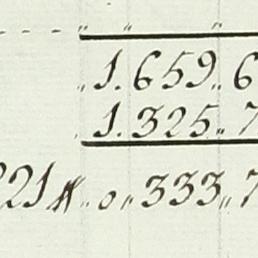 1. 659,, 6
1. 325,, 7
221 ,, 0,, 333,, 7